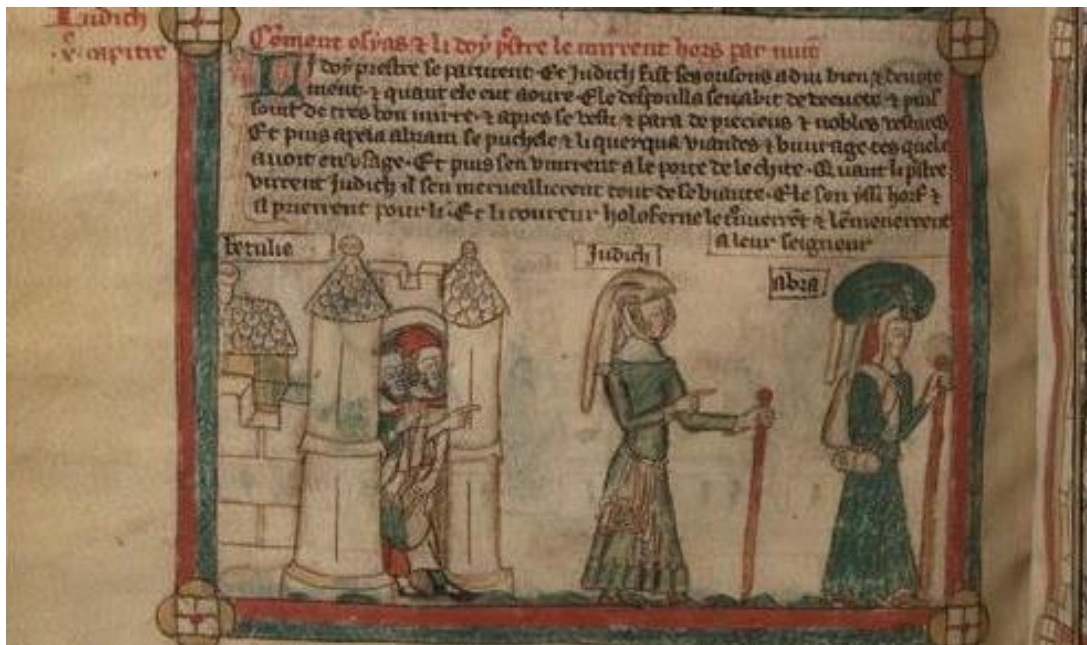 Judich
x· capitre
Coment osyas & li doy pstre le mirent hors par nuit
Li doy prestre se partirent · Et Judich fist ses orisons a diu bien & devote
ment · & quant ele eut aoure · Ele despoulla sen abit de veevete & puis
soint de tres bon mirre · & apres se vesti & para de precieus & nobles vestures
Et puis apela abram se puchele & li querqua viandes & buvrage tes quele
avoit en usage · Et puis sen vinrent a le porte de le chite · Quant li pstre
virent Judich il sen merveillierent tout de se biaute · Ele sen yssi hors &
il prierent pour li · Et li coureur holoferne le & lemenerrent
a leur seigneur
betulie
Judich
abra